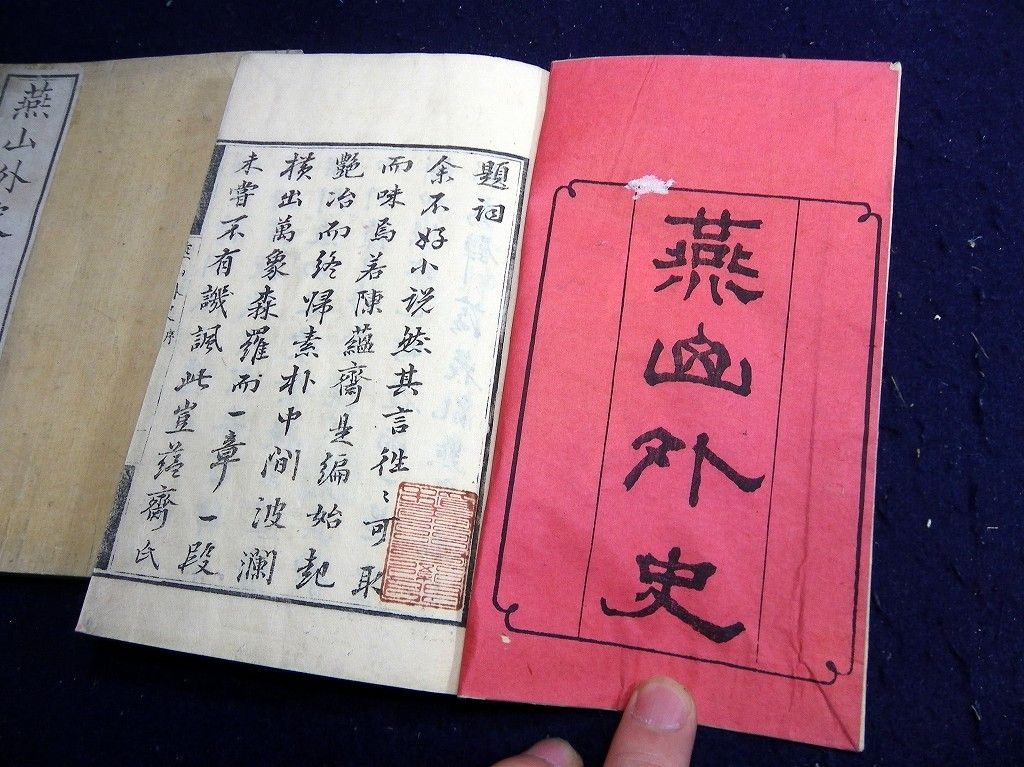 燕山外史
題詞
余不好小说然其言往〻可取
而味焉若陳蘊齋是編始起
艷冶而终歸素朴中间波瀾
横出萬象森羅而一章一段
未嘗不有譏諷此豈蕴齋氏
燕山外史